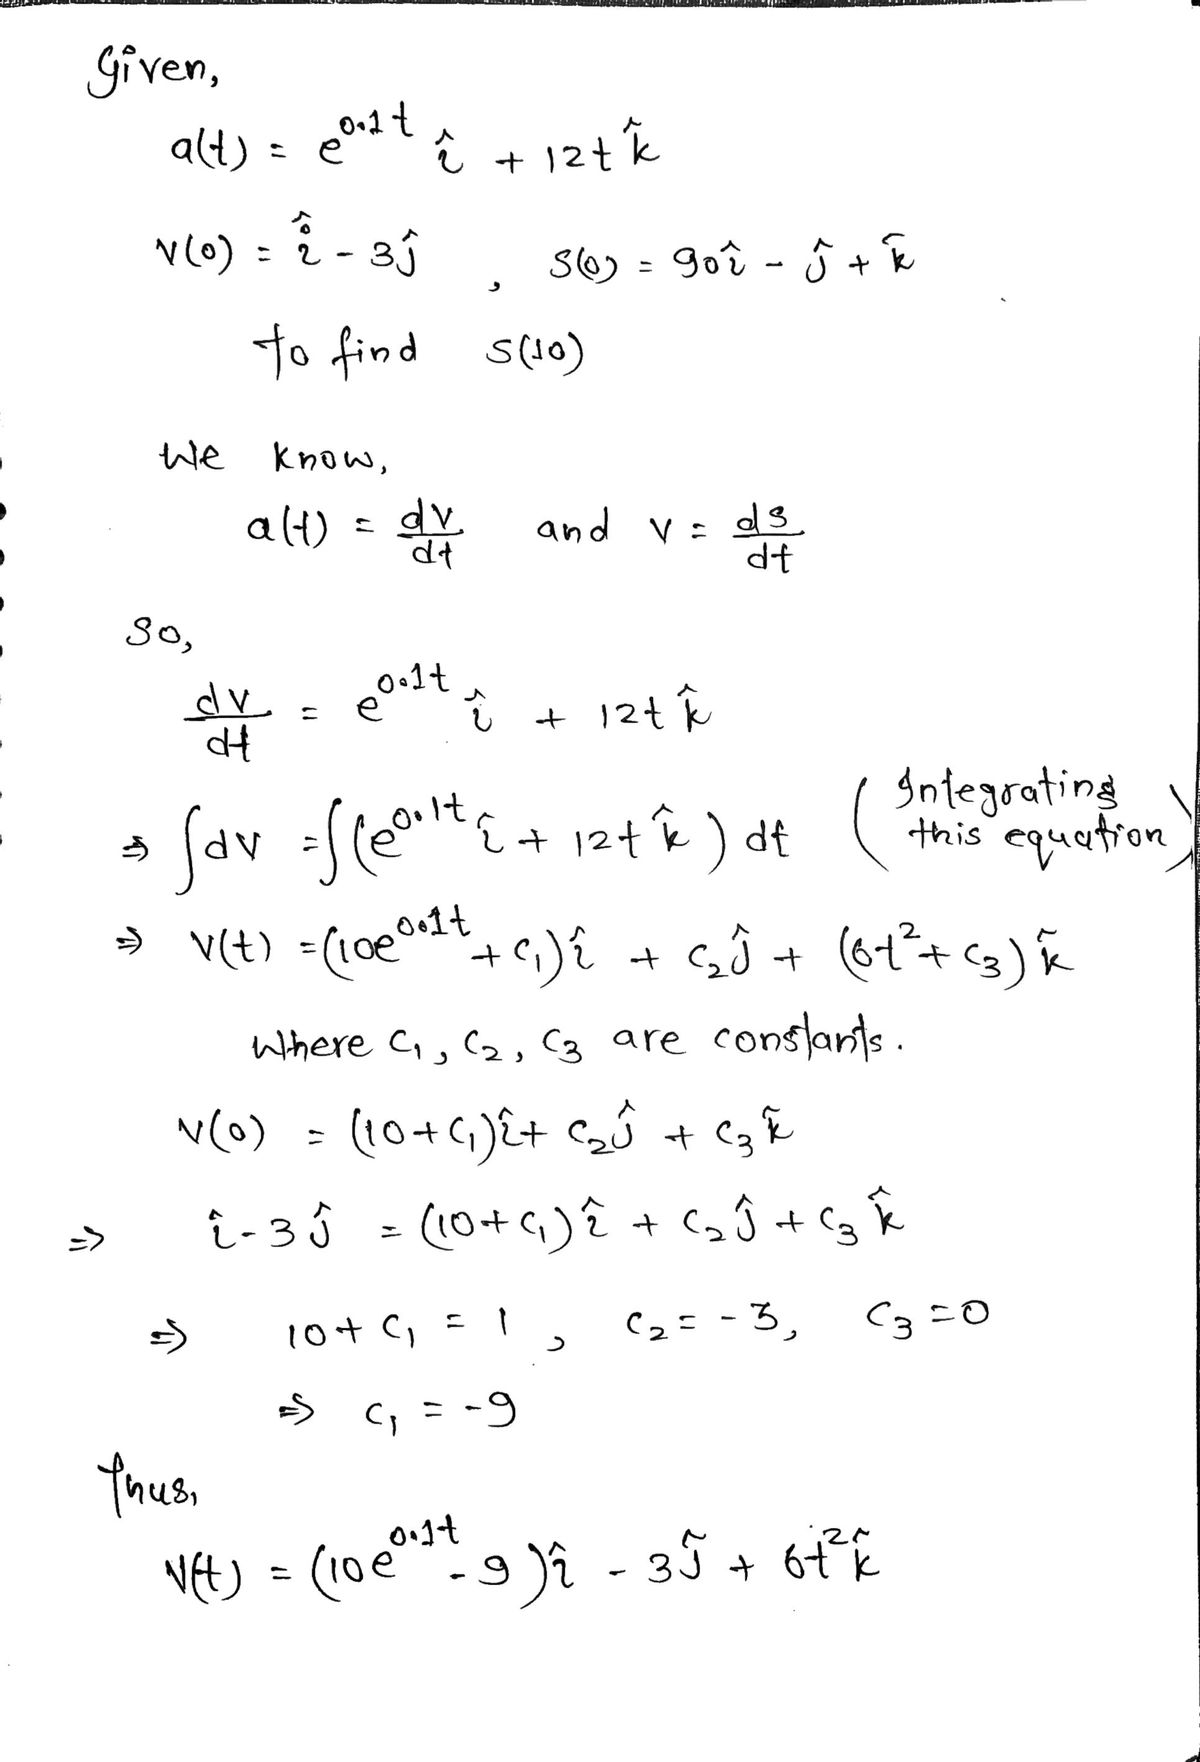 Given,
a(t) = e^0.1t î + 12t k̂
v(0) = î - 3ĵ , s(0) = 90î - ĵ + k̂
To find s(10)
We know,
a(t) = dv/dt and v = ds/dt
So,
dv/dt = e^0.1t î + 12t k̂
⇒ ∫dv = ∫(e^0.1t î + 12t k̂) dt (Integrating this equation)
⇒ v(t) = (10e^0.1t + c₁)î + c₂ĵ + (6t² + c₃)k̂
Where c₁, c₂, c₃ are constants.
v(0) = (10+c₁)î + c₂ĵ + c₃k̂
⇒ î - 3ĵ = (10+c₁)î + c₂ĵ + c₃k̂
⇒ 10 + c₁ = 1 , c₂ = -3, c₃ = 0
⇒ c₁ = -9
Thus,
v(t) = (10e^0.1t - 9)î - 3ĵ + 6t²k̂